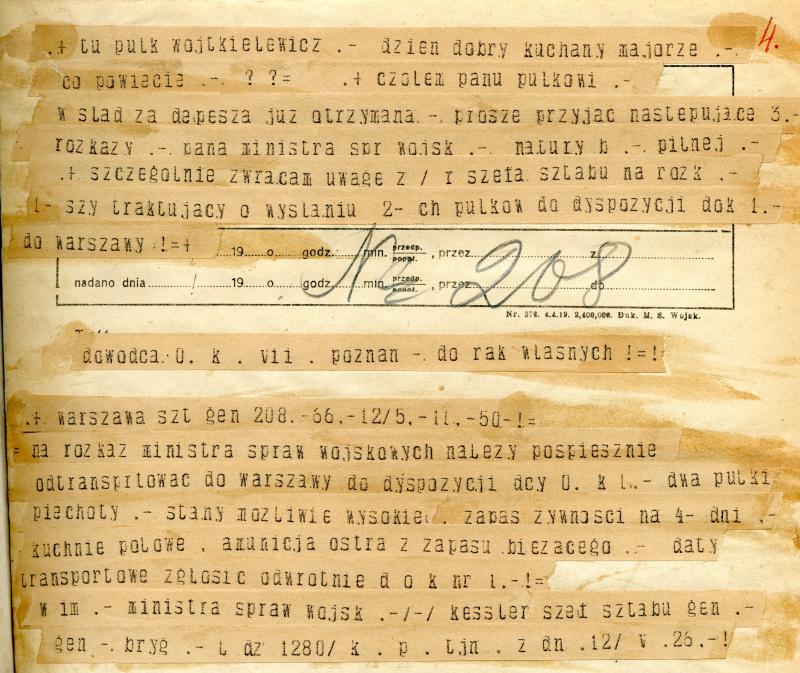 4.
.+ tu putk wojtkietewicz .- dzien dobry kuchany majorze .-.
co powiecie .-. ? ?= .+ czotem panu putkowi .-
w stad za depesza juz otrzymana -. prosze przyjac nastepujace 3.-
rozkazy .-. pana ministra spr wojsk .- natury b .-. pitnej .-
.+ szczegotnie zwracam uwage z / r szefa sztabu na rozk .-
1- szy traktujacy o wystaniu 2- ch putkow do dyspozycji dok 1.-
do warszawy !=+
19 o godz. min. przedp. popoł. , przez z
nadano dnia / 19 o godz. min. przedp. popoł. , przez do
No 208
Nr. 376. 4.4.19. 2,400,000. Duk. M. S. Wojsk.
dowodca 0. k . vii . poznan -. do rak wtasnych !=!
.+ warszawa szt gen 208.-66.-12/5.-11.-50-!=
= na rozkaz ministra spraw wojskowych natezy pospiesznie
odtransprtowac do warszawy do dyspozycji dcy 0. k 1..- dwa putki
piechoty .- stany moztiwie wysokie . zapas zywnosci na 4- dni .-
kuchnie potowe . amunicja ostra z zapasu biezacego .- daty
transportowe zgtosic odwrotnie d o k nr 1.-!=
w im .- ministra spraw wojsk .-/-/ kesster szef sztabu gen .-
gen -. bryg .- t dz 1280/ k . p . tjn . z dn .12/ v .26.-!